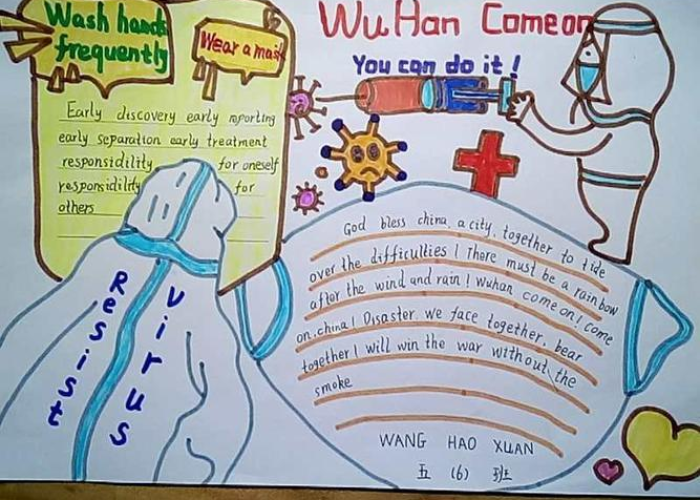 Wash hands
frequently
Wear a mask
WuHan Come on
You can do it !
Early discovery early reporting
early separation early treatment
responsidility for oneself
responsidility for
others
Resist
Virus
God bless china, a city, together to tide
over the difficulties ! There must be a rainbow
after the wind and rain ! Wuhan come on ! Come
on, china ! Disaster we face together, bear
together I will win the war without the
smoke
WANG HAO XUAN
五 (6) 班